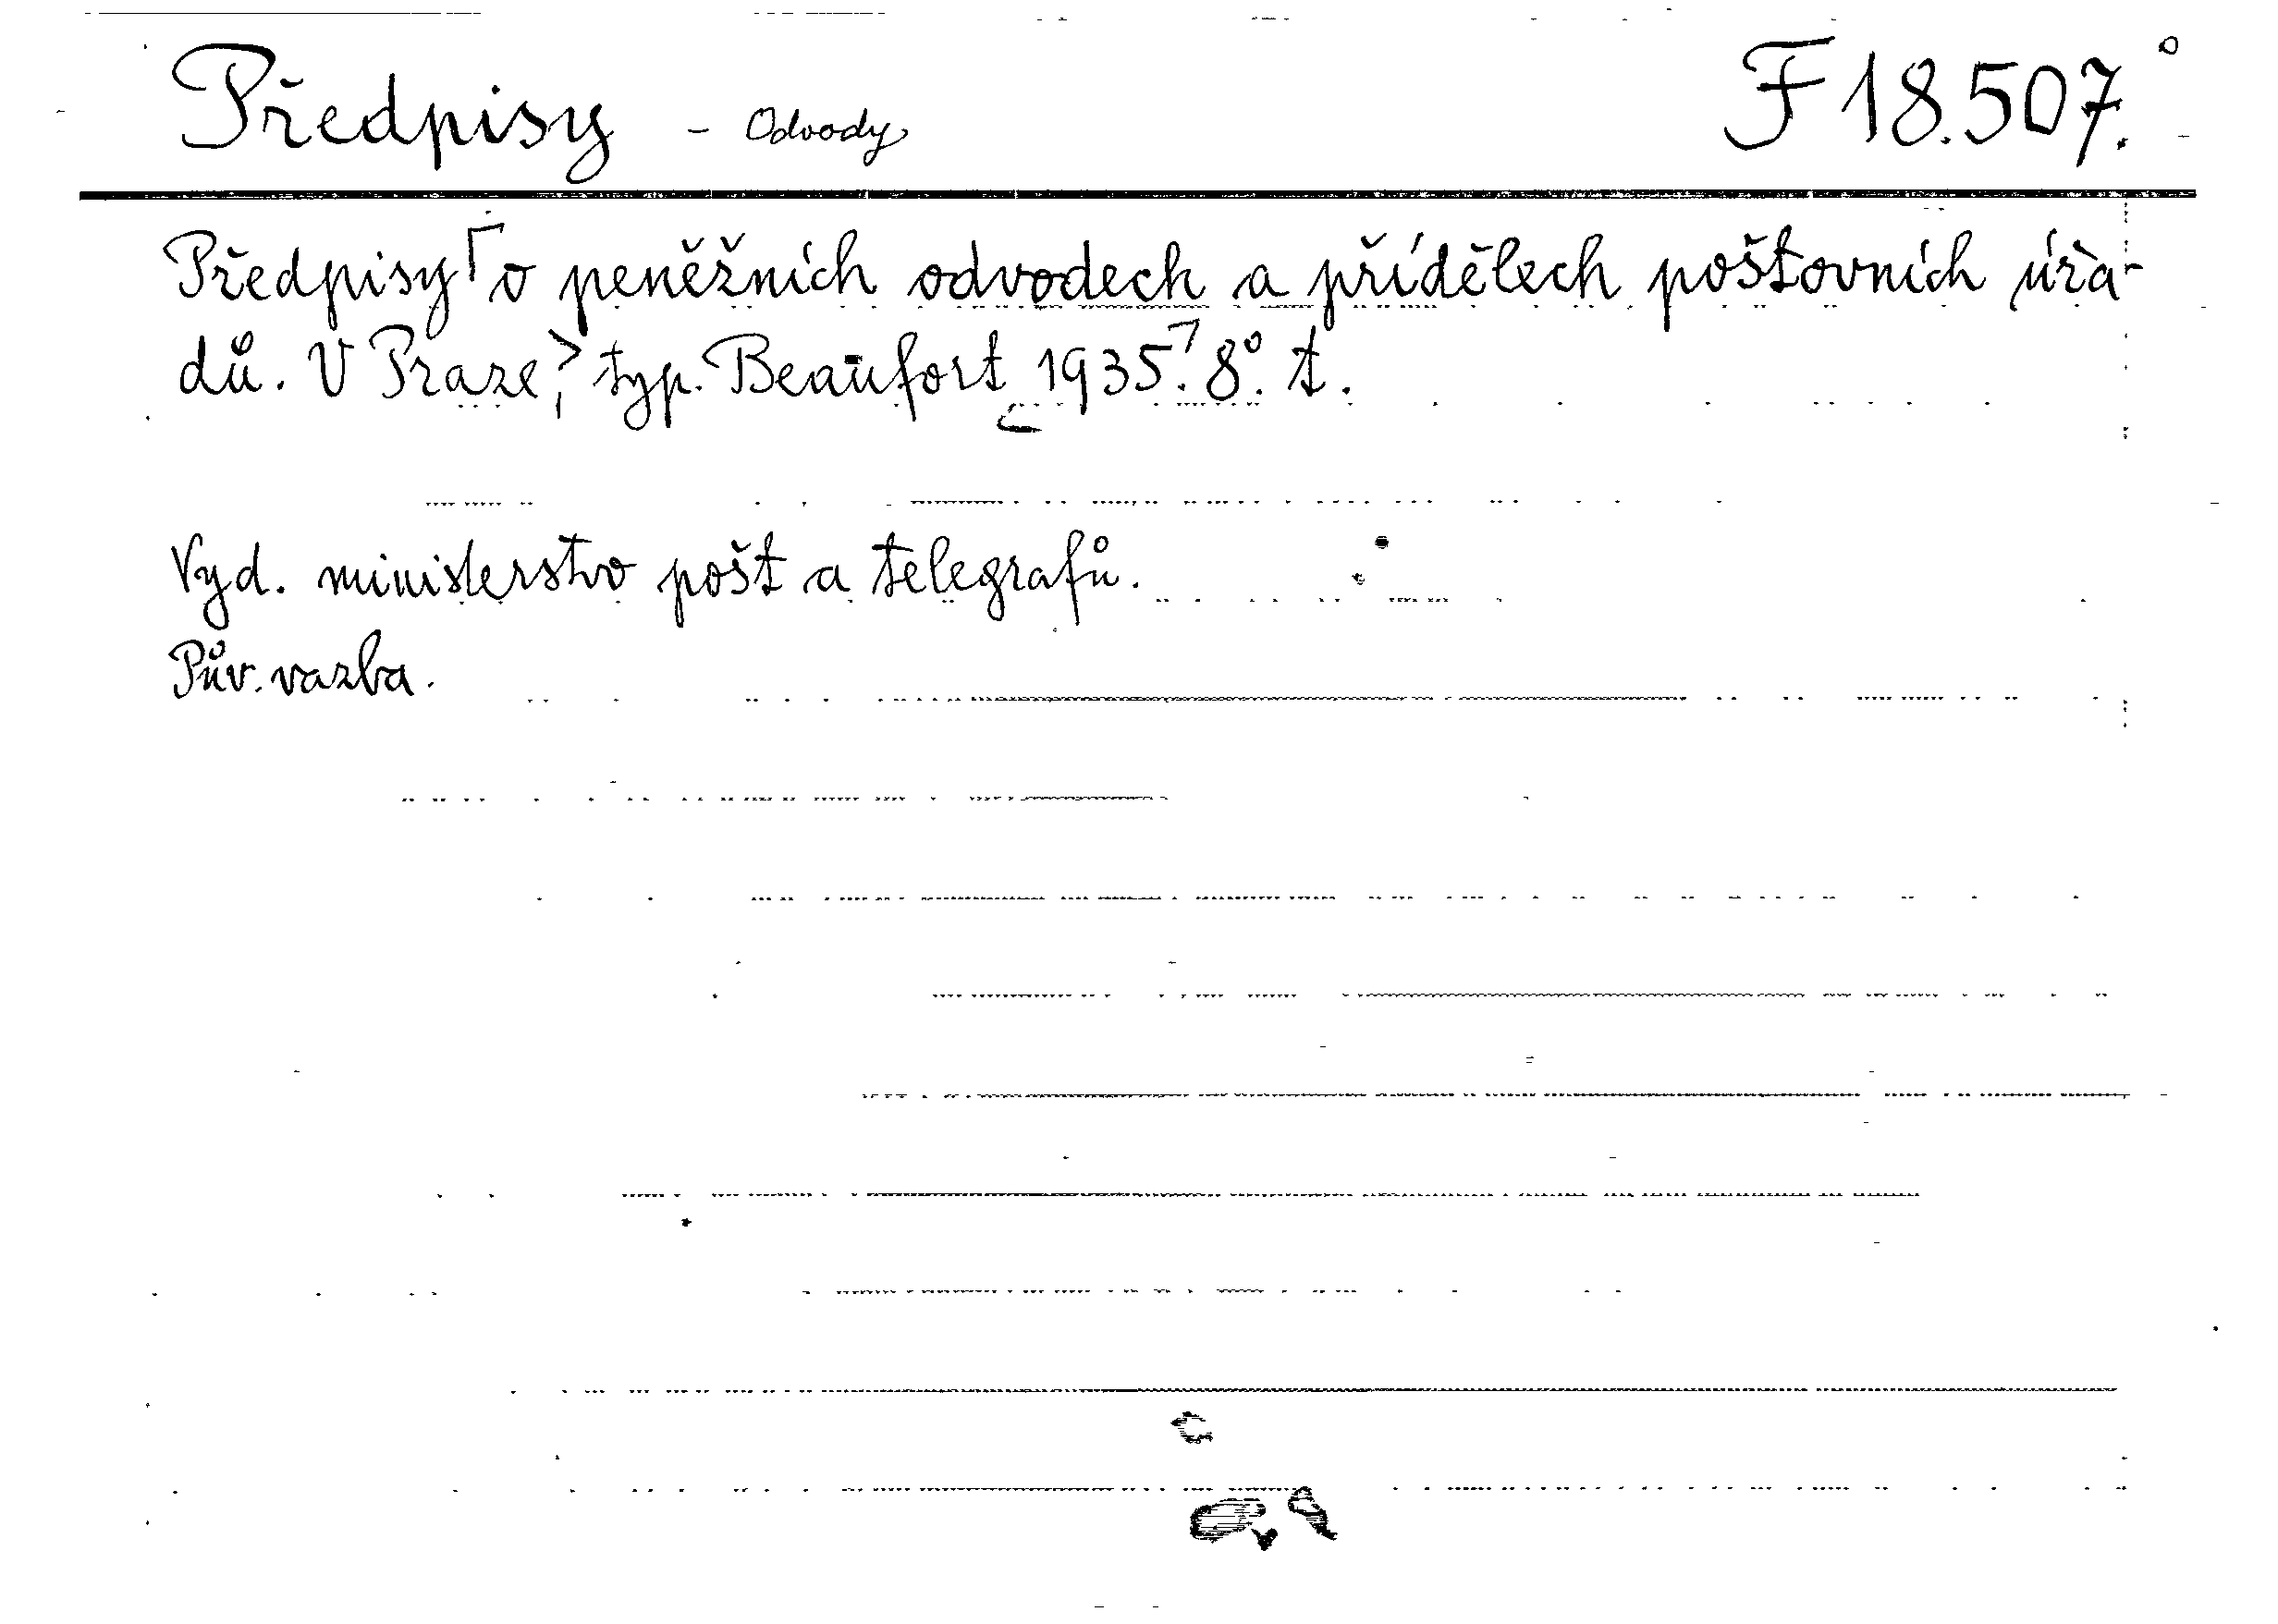 Předpisy - Odvody F 18.507.°
Předpisy o peněžních odvodech a přídělech poštovních úřa-
dů. V Praze, typ. Beaufort 1935. 8°. t.
Vyd. ministerstvo pošt a telegrafů.
Pův. vazba.